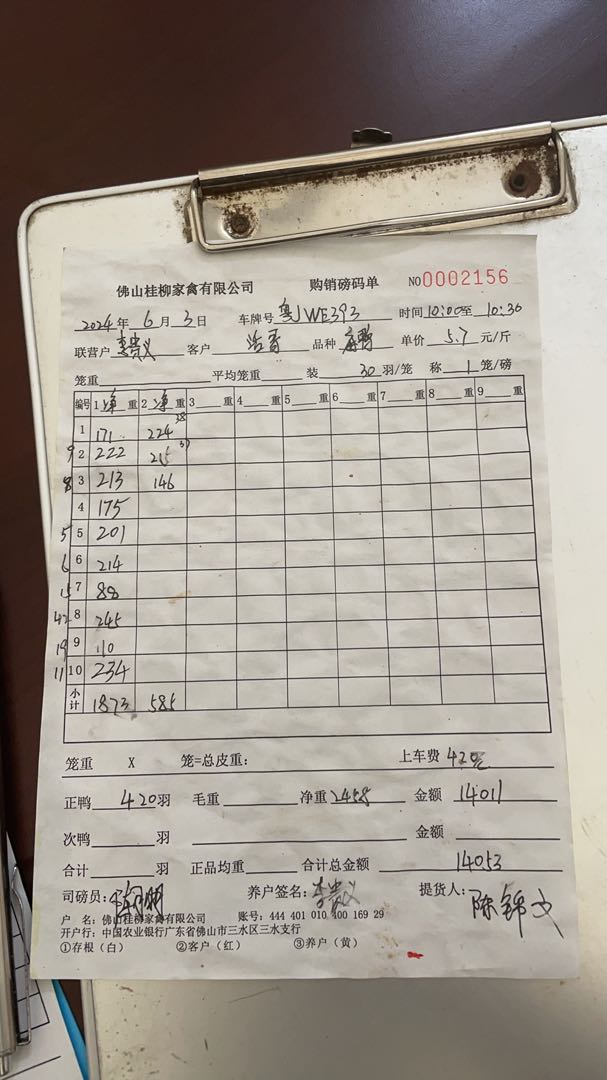 佛山桂柳家禽有限公司 购销磅码单 NO0002156
2024年6月3日 车牌号 粤JWE393 时间10:00至10:30
联营户 李贵义 客户 品种 单价 5.7 元/斤
笼重 平均笼重 装 30 羽/笼 称 1 笼/磅
编号 1净重 2净重 3重 4重 5重 6重 7重 8重 9重
1 171 224 38
9 2 222 215 37
8 3 213 146
4 175
5 5 201
6 6 214
15 7 88
42 8 245
19 9 110
11 10 234
小计 1873 585
笼重 X 笼=总皮重: 上车费 42元
正鸭 420羽 毛重 净重2458 金额 14011
次鸭 羽 金额
合计 羽 正品均重 合计总金额 14053
司磅员: 养户签名: 李贵义 提货人: 陈锦文
户 名: 佛山桂柳家禽有限公司 账号: 444 401 010 400 169 29
开户行: 中国农业银行广东省佛山市三水区三水支行
①存根(白) ②客户(红) ③养户(黄)